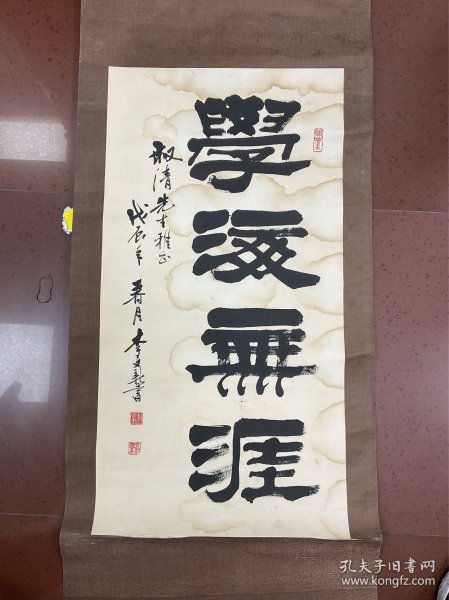 學海無涯
淑清先生雅正
戊辰年春月李
孔夫子旧书网
www.kongfz.com